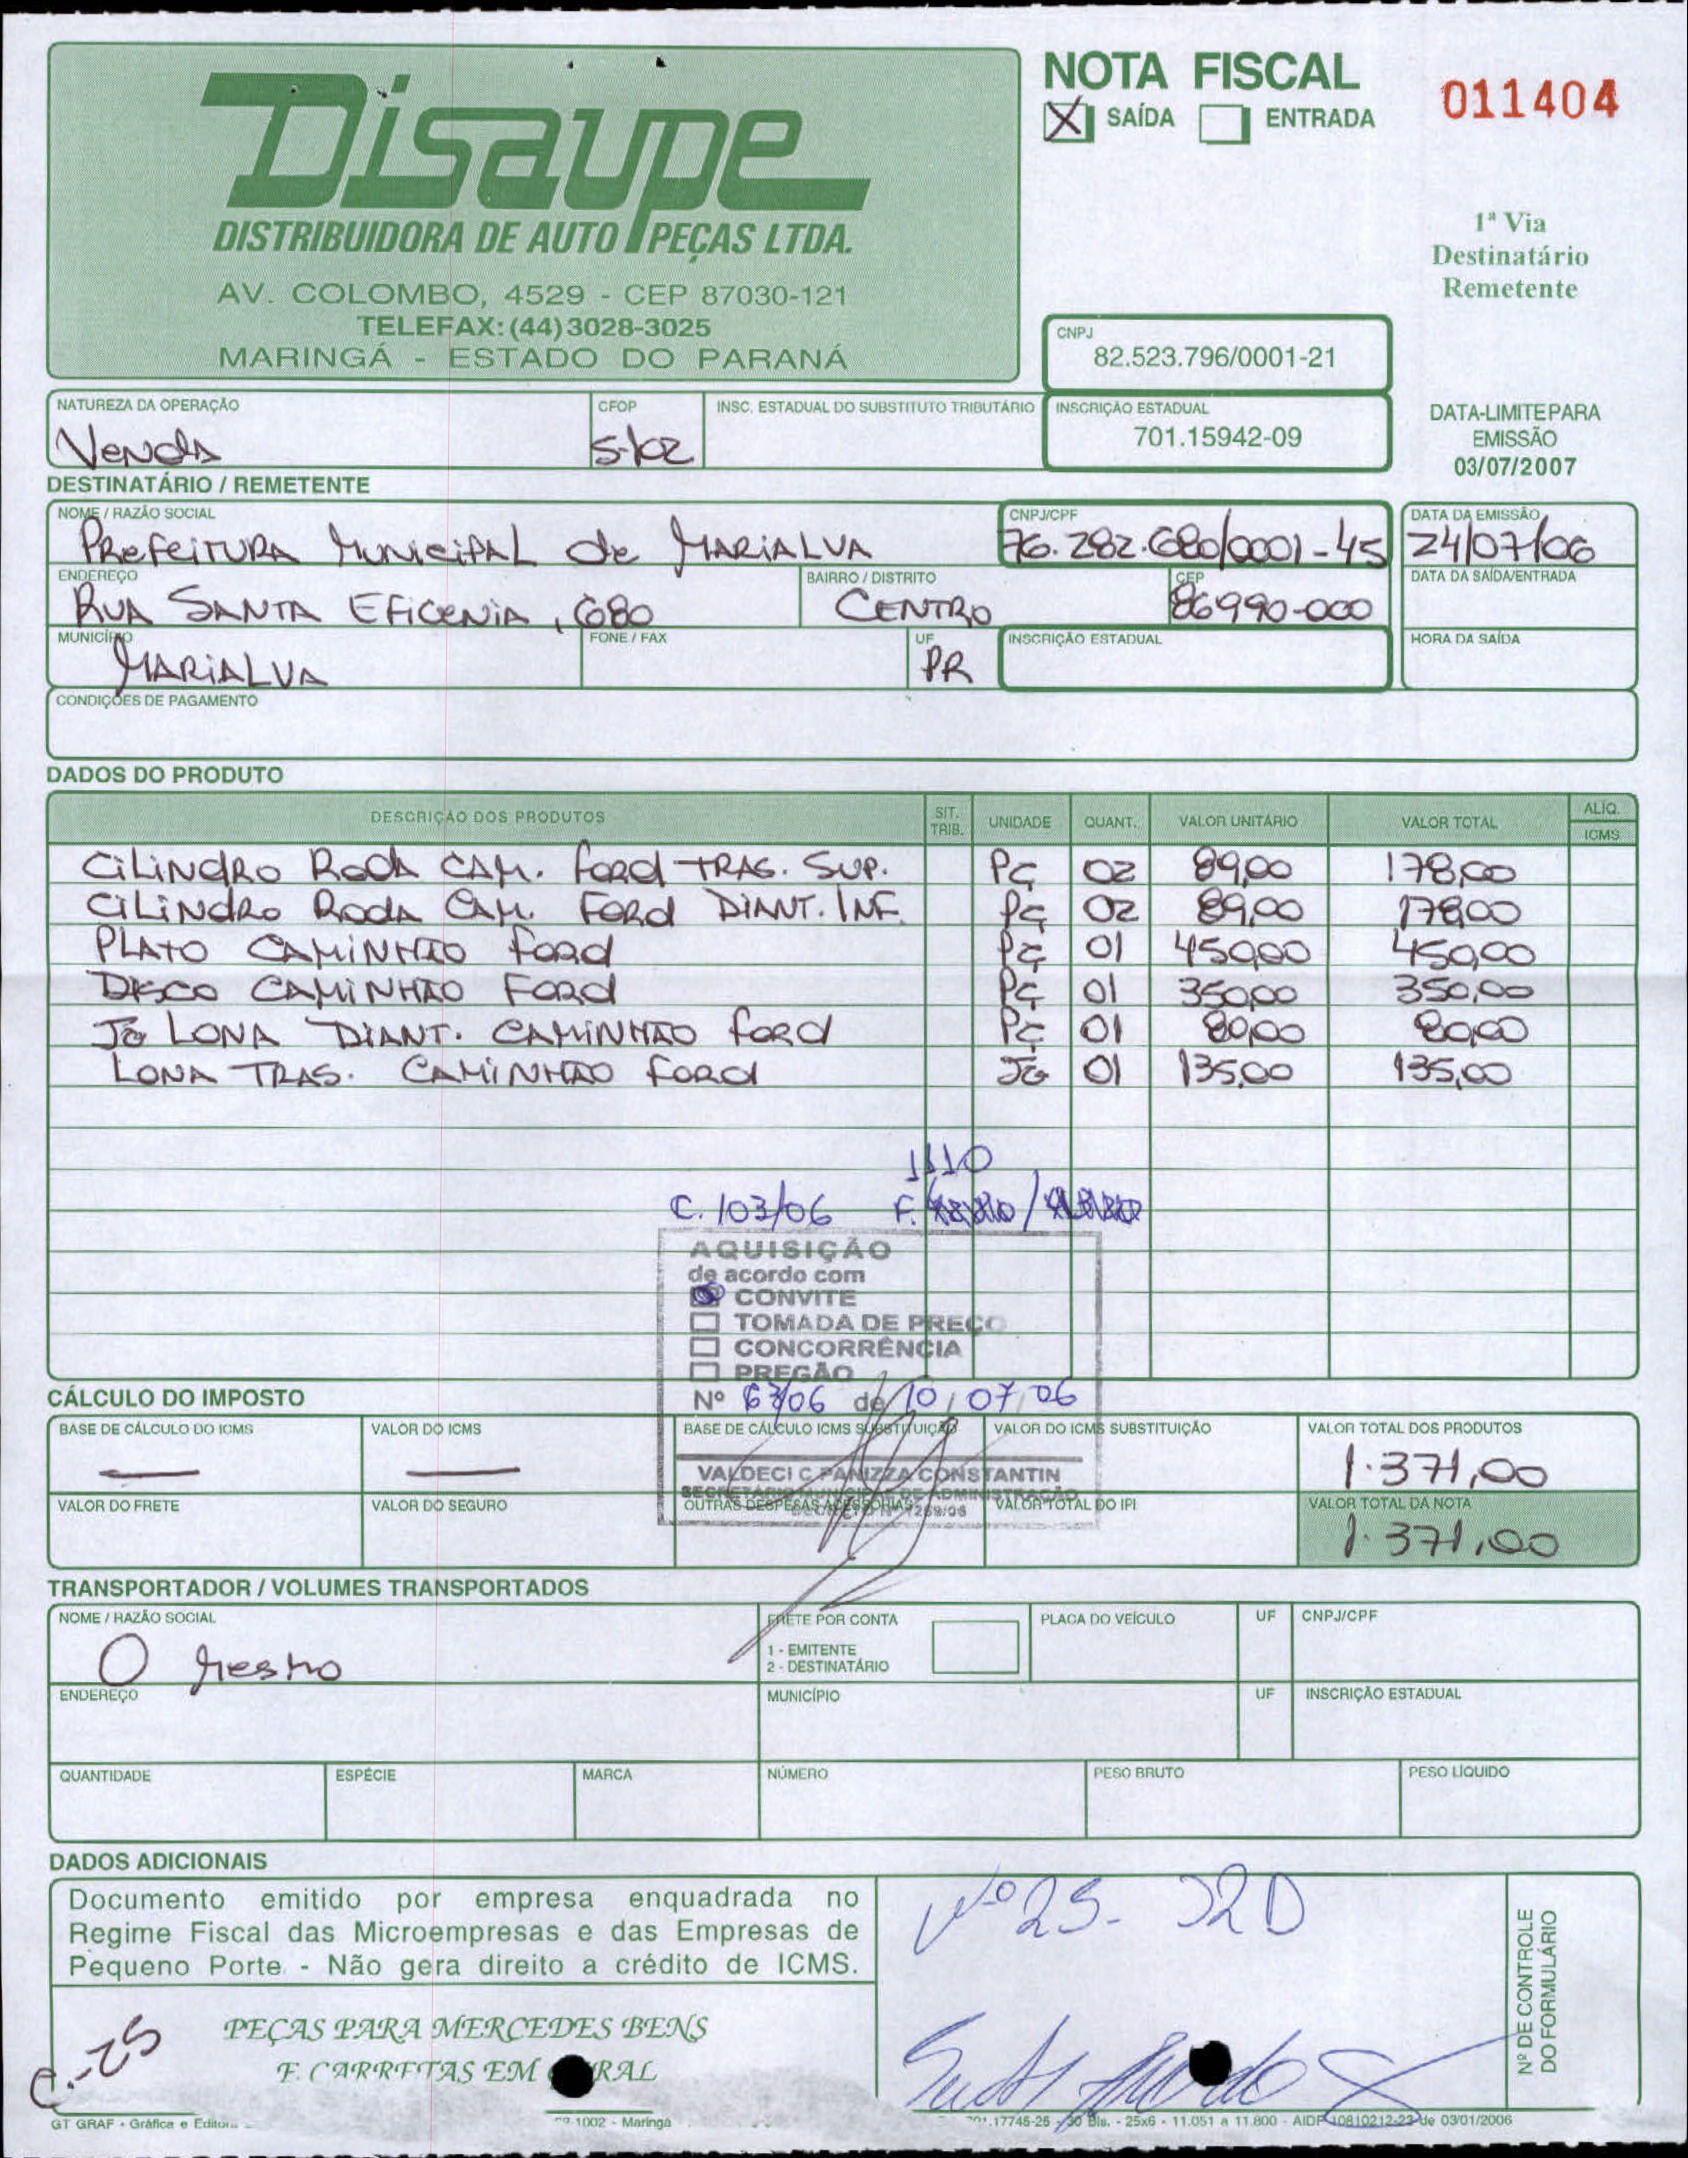 Disaupe
DISTRIBUIDORA DE AUTO PEÇAS LTDA.
AV. COLOMBO, 4529 - CEP 87030-121
TELEFAX: (44) 3028-3025
MARINGÁ - ESTADO DO PARANÁ
NOTA FISCAL
X SAÍDA ENTRADA
011404
1ª Via
Destinatário
Remetente
CNPJ
82.523.796/0001-21
NATUREZA DA OPERAÇÃO CFOP INSC. ESTADUAL DO SUBSTITUTO TRIBUTÁRIO INSCRIÇÃO ESTADUAL
Venda 5-102 701.15942-09
DATA-LIMITE PARA
EMISSÃO
03/07/2007
DESTINATÁRIO / REMETENTE
NOME / RAZÃO SOCIAL CNPJ/CPF DATA DA EMISSÃO
PREFEITURA MUNICIPAL de MARIALVA 76.282.680/0001-45 24/07/06
ENDEREÇO BAIRRO / DISTRITO CEP DATA DA SAÍDA/ENTRADA
RUA SANTA EFIGENIA, 680 CENTRO 86990-000
MUNICÍPIO FONE / FAX UF INSCRIÇÃO ESTADUAL HORA DA SAÍDA
MARIALVA PR
CONDIÇÕES DE PAGAMENTO
DADOS DO PRODUTO
DESCRIÇÃO DOS PRODUTOS SIT. TRIB. UNIDADE QUANT. VALOR UNITÁRIO VALOR TOTAL ALÍQ. ICMS
CILINDRO RODA CAM. FORD TRAS. SUP. PÇ 02 89,00 178,00
CILINDRO RODA CAM. FORD DIANT. INF. PÇ 02 89,00 178,00
PLATO CAMINHÃO FORD PÇ 01 450,00 450,00
DISCO CAMINHÃO FORD PÇ 01 350,00 350,00
JG LONA DIANT. CAMINHÃO FORD PÇ 01 80,00 80,00
LONA TRAS. CAMINHÃO FORD JG 01 135,00 135,00
1110
C. 103/06 F.
AQUISIÇÃO
de acordo com
CONVITE
TOMADA DE PREÇO
CONCORRÊNCIA
PREGÃO
Nº 63/06 de 10/07/06
VALDECI C PANIZZA CONSTANTIN
SECRETÁRIO MUNICIPAL DE ADMINISTRAÇÃO
CÁLCULO DO IMPOSTO
BASE DE CÁLCULO DO ICMS VALOR DO ICMS BASE DE CÁLCULO ICMS SUBSTITUIÇÃO VALOR DO ICMS SUBSTITUIÇÃO VALOR TOTAL DOS PRODUTOS
— — 1.371,00
VALOR DO FRETE VALOR DO SEGURO OUTRAS DESPESAS ACESSÓRIAS VALOR TOTAL DO IPI VALOR TOTAL DA NOTA
1.371,00
TRANSPORTADOR / VOLUMES TRANSPORTADOS
NOME / RAZÃO SOCIAL FRETE POR CONTA PLACA DO VEÍCULO UF CNPJ/CPF
O Mesmo
1 - EMITENTE
2 - DESTINATÁRIO
ENDEREÇO MUNICÍPIO UF INSCRIÇÃO ESTADUAL
QUANTIDADE ESPÉCIE MARCA NÚMERO PESO BRUTO PESO LÍQUIDO
DADOS ADICIONAIS
Documento emitido por empresa enquadrada no
Regime Fiscal das Microempresas e das Empresas de
Pequeno Porte - Não gera direito a crédito de ICMS.
Nº DE CONTROLE
DO FORMULÁRIO
PEÇAS PARA MERCEDES BENS
E CARRETAS EM
C.-25
GT GRAF - Gráfica e 1002 - Maringá 30 Bls. - 25x6 - 11.051 a 11.800 - AIDF 10810212-23 de 03/01/2006